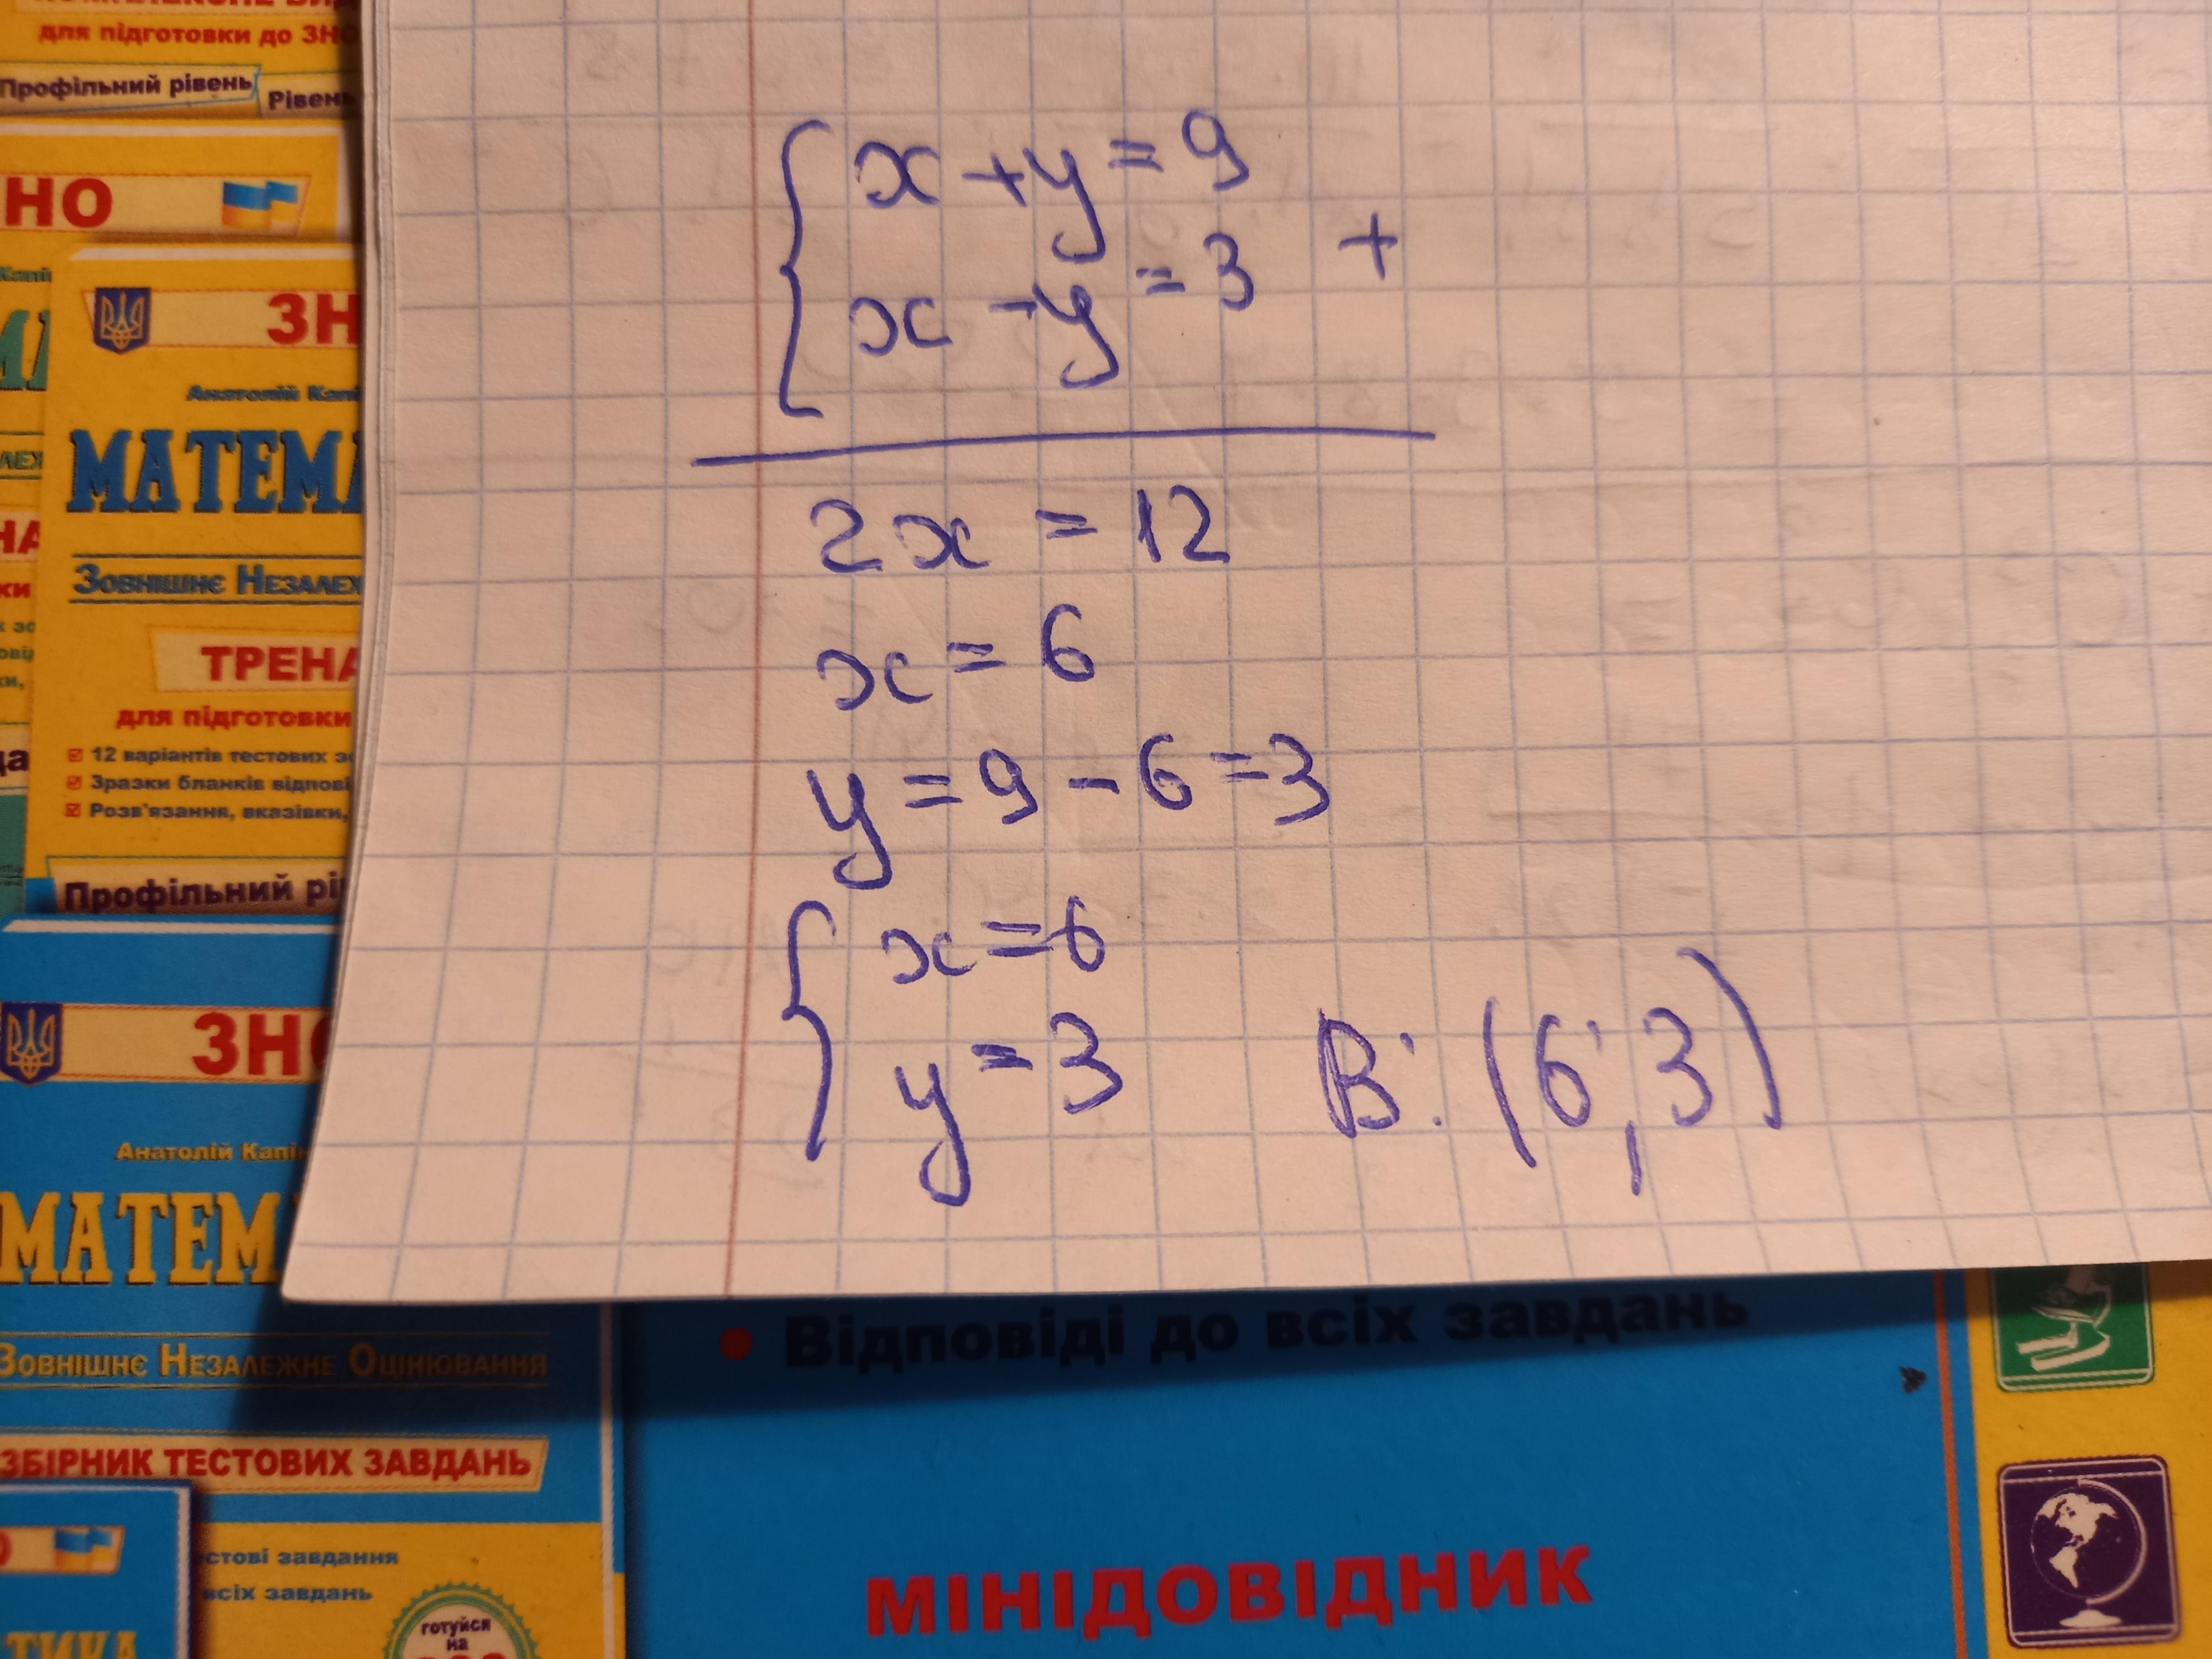 для підготовки до ЗНО
Профільний рівень
Рівень
НО
ЗН
Анатолій Капі
МАТЕМА
Зовнішнє Незалеж
ТРЕНА
для підготовки
12 варіантів тестових з
Зразки бланків відпові
Розв'язання, вказівки,
Профільний рі
{ x + y = 9
x - y = 3 +
2x = 12
x = 6
y = 9 - 6 = 3
{ x = 6
y = 3
В: (6; 3)
ЗНО
Анатолій Капі
МАТЕМ
Зовнішнє Незалежне Оцінювання
ЗБІРНИК ТЕСТОВИХ ЗАВДАНЬ
стові завдання
всіх завдань
готуйся
на
ТИКА
• Відповіді до всіх завдань
МІНІДОВІДНИК